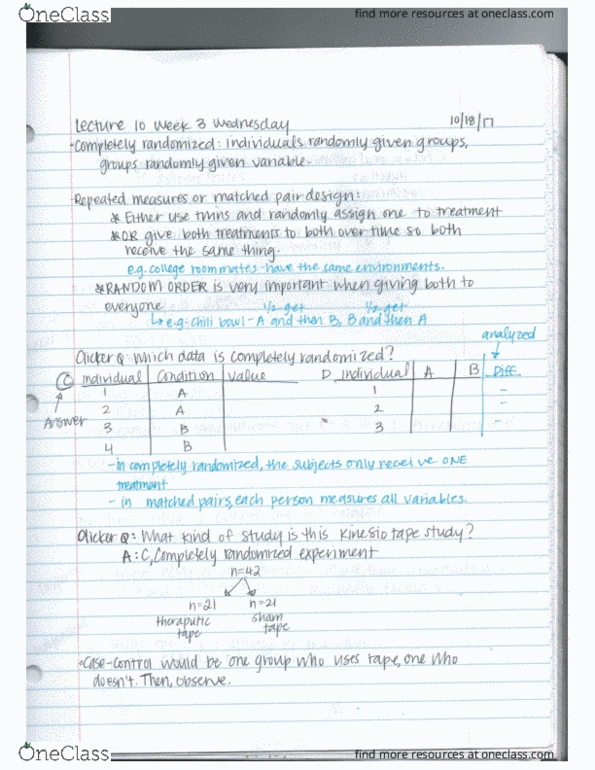 OneClass
find more resources at oneclass.com
Lecture 10 Week 3 Wednesday 10/18/17
-Completely randomized: Individuals randomly given groups,
groups randomly given variable.
Repeated measures or matched pair design:
* Either use twins and randomly assign one to treatment
* OR give both treatments to both over time so both
receive the same thing.
e.g. college roommates-have the same environments.
* RANDOM ORDER is very important when giving both to
everyone 1/2 get 1/2 get
↳ e.g. chili bowl-A and then B, B and then A
analyzed
Clicker Q: Which data is completely randomized?
C Individual Condition Value D Individual A B Diff.
1 A 1 -
Answer 2 A 2 -
3 B 3 -
4 B
-in completely randomized, the subjects only receive ONE
treatment
- in matched pairs, each person measures all variables.
Clicker Q: What kind of study is this kinesio tape study?
A: C, Completely randomized experiment
n=42
n=21 n=21
theraputic sham
tape tape
•Case-control would be one group who uses tape, one who
doesn't. Then, observe.
OneClass
find more resources at oneclass.com